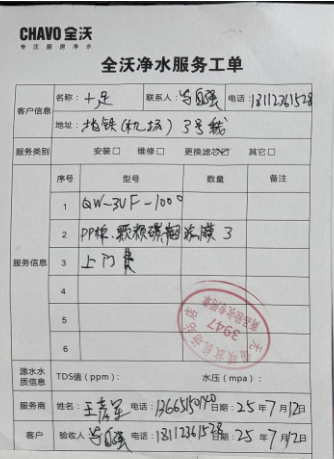 CHAVO 全沃
专注厨房净水
全沃净水服务工单
客户信息
名称：十足 联系人： 强 电话：18112361528
地址：地铁(机场)3号线
服务类别 安装□ 维修□ 更换滤芯☑ 其它□
服务信息
序号 型号 数量 备注
1 QW-3UF-1000
2 PP棉、颗粒碳 滤膜 3
3 上门费
4
5
6
3947
源水水质信息 TDS值（ppm）： 水压（mpa）：
服务商 姓名：王 军 电话： 日期：25年7月12日
客户 验收人 强 电话：18112361528 日期：25年7月12日